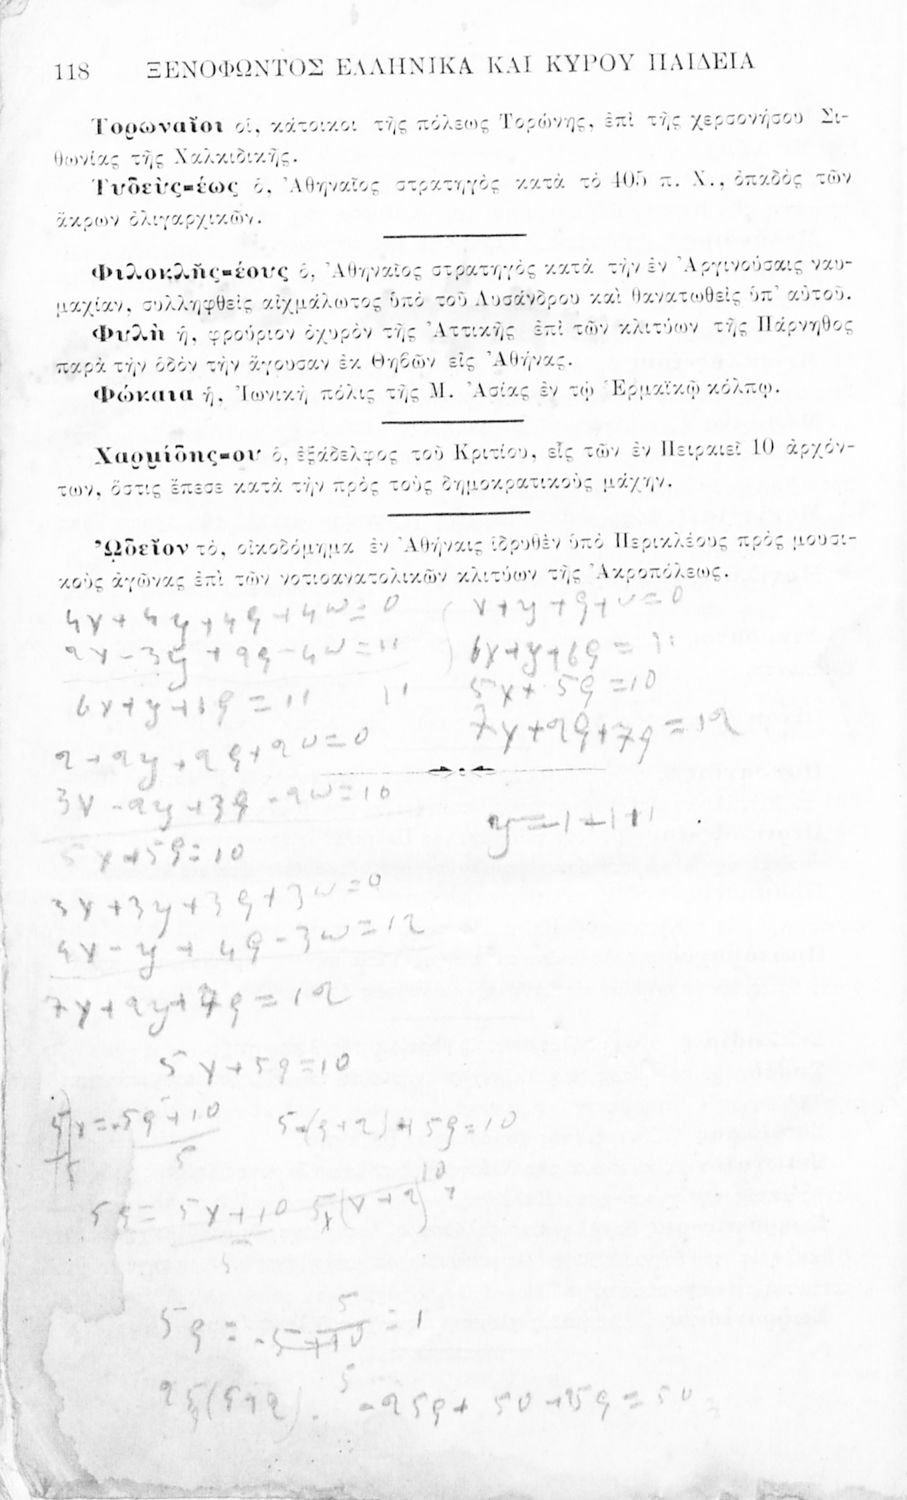 118 ΞΕΝΟΦΩΝΤΟΣ ΕΛΛΗΝΙΚΑ ΚΑΙ ΚΥΡΟΥ ΠΑΙΔΕΙΑ
Τορωναῖοι οἱ, κάτοικοι τῆς πόλεως Τορώνης, ἐπὶ τῆς χερσονήσου Σι-
θωνίας τῆς Χαλκιδικῆς.
Τυδεὺς-έως ὁ, Ἀθηναῖος στρατηγὸς κατὰ τὸ 405 π. Χ., ὀπαδὸς τῶν
ἄκρων ὀλιγαρχικῶν.
Φιλοκλῆς-έους ὁ, Ἀθηναῖος στρατηγὸς κατὰ τὴν ἐν Ἀργινούσαις ναυ-
μαχίαν, συλληφθεὶς αἰχμάλωτος ὑπὸ τοῦ Λυσάνδρου καὶ θανατωθεὶς ὑπ' αὐτοῦ.
Φυλὴ ἡ, φρούριον ὀχυρὸν τῆς Ἀττικῆς ἐπὶ τῶν κλιτύων τῆς Πάρνηθος
παρὰ τὴν ὁδὸν τὴν ἄγουσαν ἐκ Θηβῶν εἰς Ἀθήνας.
Φώκαια ἡ, Ἰωνικὴ πόλις τῆς Μ. Ἀσίας ἐν τῷ Ἑρμαϊκῷ κόλπῳ.
Χαρμίδης-ου ὁ, ἐξάδελφος τοῦ Κριτίου, εἷς τῶν ἐν Πειραιεῖ 10 ἀρχόν-
των, ὅστις ἔπεσε κατὰ τὴν πρὸς τοὺς δημοκρατικοὺς μάχην.
Ὠδεῖον τὸ, οἰκοδόμημα ἐν Ἀθήναις ἱδρυθὲν ὑπὸ Περικλέους πρὸς μουσι-
κοὺς ἀγῶνας ἐπὶ τῶν νοτιοανατολικῶν κλιτύων τῆς Ἀκροπόλεως.
4x+4y+4φ+4ω=0
2x-3y+2φ-4ω=11
6x+y+6φ=11
3x-2y+3φ-2ω=10
5x+5φ=10
3x+3y+3φ+3ω=0
4x-y+4φ-3ω=12
7x+2y+7φ=12
x+y+φ+ω=0
6x+y+6φ=11
5x+5φ=10
y=-1+1+1
5x+5φ=10